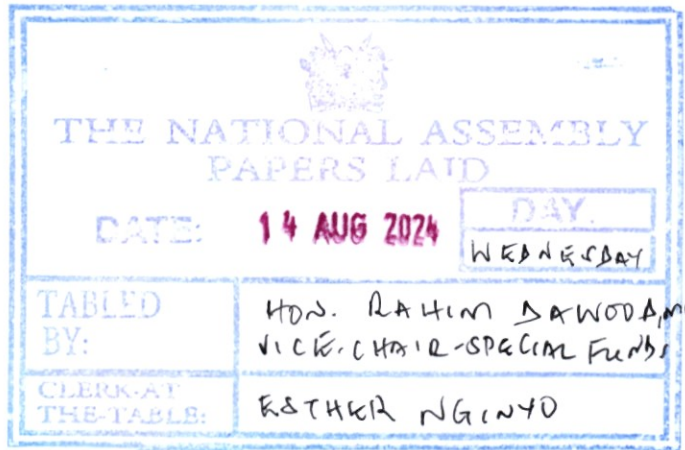 THE NATIONAL ASSEMBLY
PAPERS LAID
DATE: 14 AUG 2024
DAY.
WEDNESDAY
TABLED BY:
HON. RAHIM DAWOOD, M
VICE-CHAIR-SPECIAL FUNDS
CLERK-AT THE-TABLE:
ESTHER NGINYO